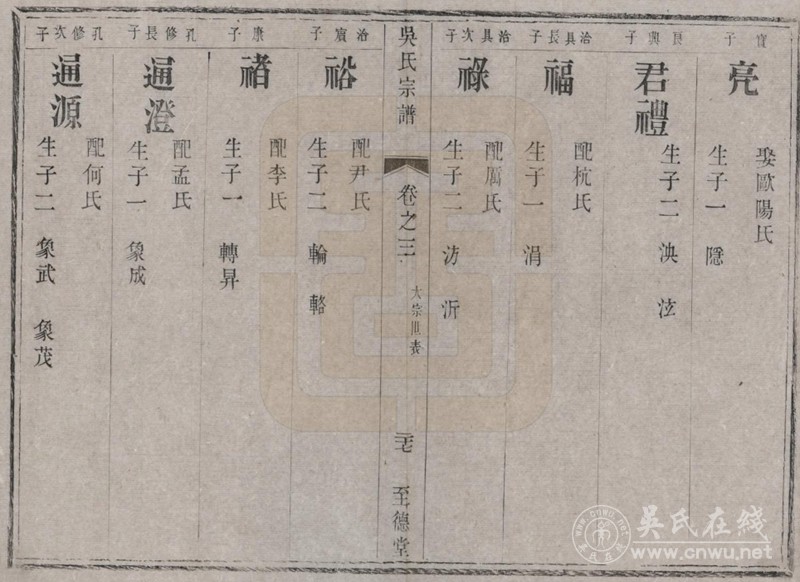 寶子
亮
娶歐陽氏
生子一 隱
長興子
君禮
生子二 泱 泫
治具長子
福
配杭氏
生子一 涓
治具次子
祿
配厲氏
生子二 汸 沂
吳氏宗譜
卷之三
大宗世表
至德堂
治賓子
裕
配尹氏
生子二 輪 輅
康子
禇
配李氏
生子一 轉昇
孔修長子
逼澄
配孟氏
生子一 象成
孔修次子
逼源
配何氏
生子二 象武 象茂
吴氏在线
www.cnwu.net